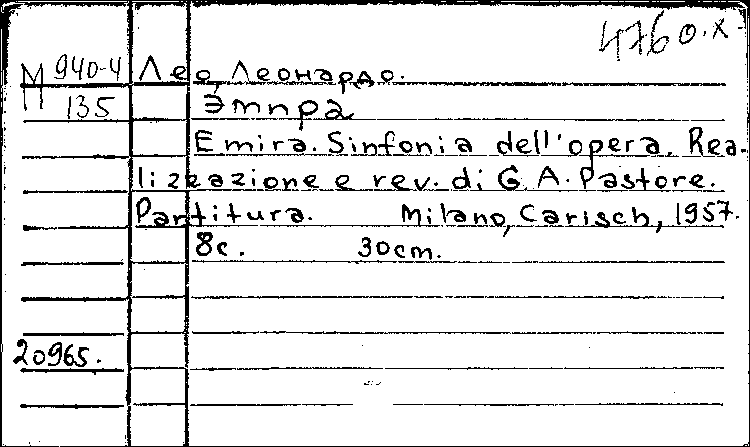 4760.x-
М 940-4 Лео, Леонардо.
135 Эмира
Emira. Sinfonia dell'opera. Rea-
lizzazione e rev. di G. A. Pastore.
Partitura. Milano, Carisch, 1957.
8с. 30cm.
20965.